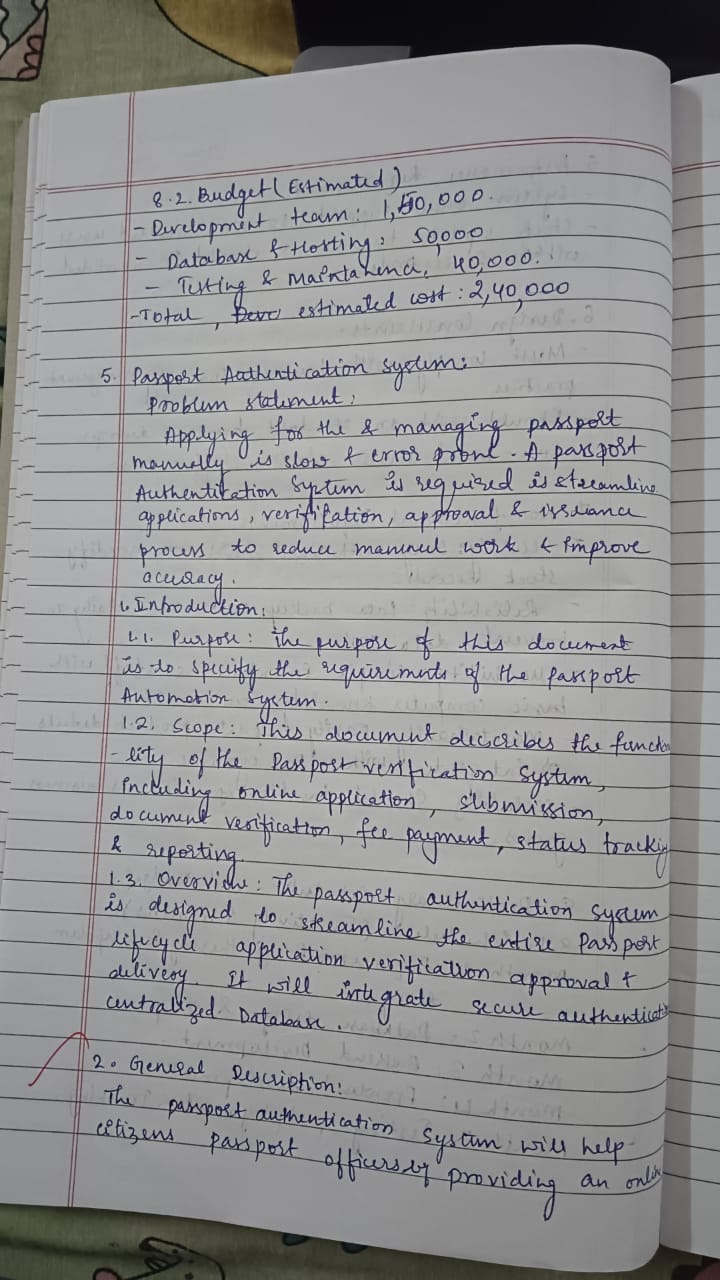 8.2. Budget (Estimated)
- Development team: 1,50,000.
- Database & Hosting: 50,000
- Testing & Maintainence, 40,000.
- Total, estimated cost: 2,40,000
5. Passport Authentication system:
Problem statement:
Applying for the & managing passport
manually is slow & error prone. A passport
Authentication System is required is streamline
applications, verification, approval & issuance
process to reduce manual work & improve
accuracy.
1. Introduction:
1.1. Purpose: The purpose of this document
is to specify the requirements of the passport
Automation System.
1.2. Scope: This document describes the functio
-lity of the Passport verification System,
including online application, submission,
document verification, fee payment, status trackig
& reporting.
1.3. Overview: The passport authentication system
is designed to streamline the entire Passport
lifecycle application verification approval &
delivery. It will integrate secure authenticatio
centralized Database.
2. General Description:
The passport authentication System will help
citizens passport officers by providing an online